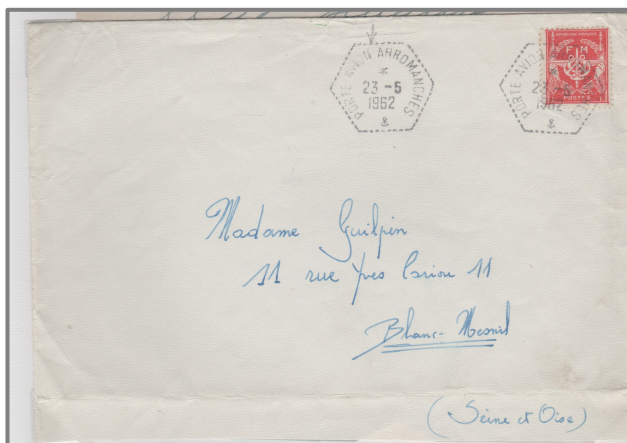 PORTE AVION ARROMANCHES
23 - 5
1962
PORTE AVION ARROMANCHES
23 - 5
1962
F M
POSTES
Madame Guilpin
11 rue Yves Cariou 11
Blanc-Mesnil
(Seine et Oise)